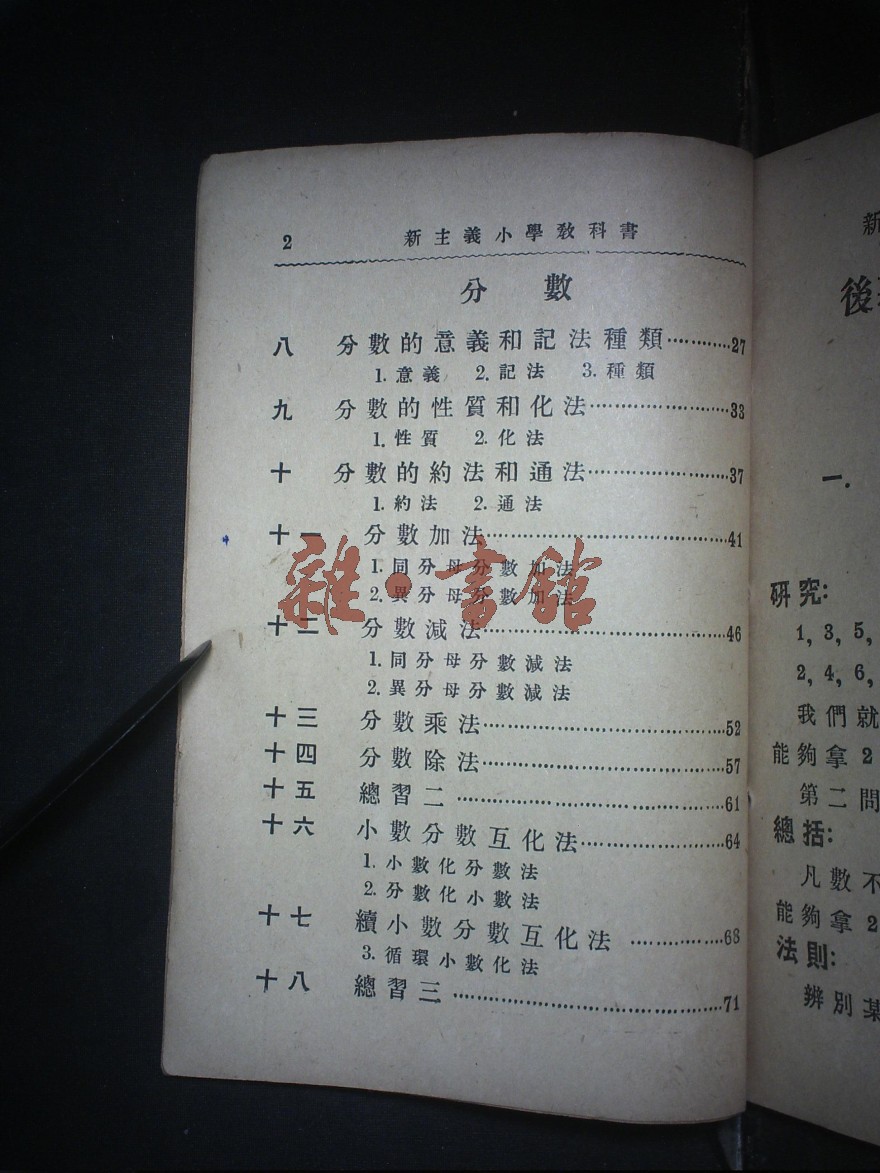 2 新主義小學教科書
分 數
八 分數的意義和記法種類············27
1. 意義 2. 記法 3. 種類
九 分數的性質和化法·····················33
1. 性質 2. 化法
十 分數的約法和通法·····················37
1. 約法 2. 通法
十一 分數加法·······························41
1. 同分母分數加法
2. 異分母分數加法
十二 分數減法·······························46
1. 同分母分數減法
2. 異分母分數減法
十三 分數乘法·······························52
十四 分數除法·······························57
十五 總習二 ·································61
十六 小數分數互化法·····················64
1. 小數化分數法
2. 分數化小數法
十七 續小數分數互化法 ················68
3. 循環小數化法
十八 總習三 ·································71
雜·書館
新
後
一.
研究:
1, 3, 5,
2, 4, 6,
我們就
能夠拿 2
第二問
總括:
凡數不
能夠拿 2
法則:
辨別某